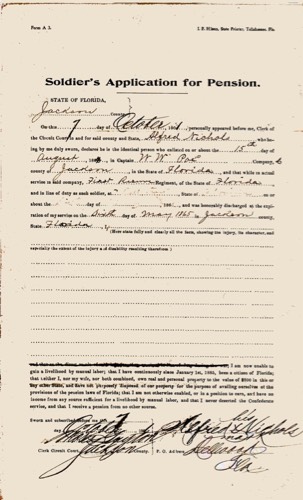 Form A 3.
I. B. Hilson, State Printer, Tallahassee, Fla.
Soldier's Application for Pension.
STATE OF FLORIDA,
Jackson County
On this 7 day of October 190 , personally appeared before me, Clerk of
the Circuit Court in and for the county and State aforesaid, Alfred Nichols who be-
ing by me duly sworn, declares he is the identical person who enlisted on or about the 15th day of
August 186 , in Captain W. W. Poe Company
county of Jackson, in the State of Florida, and that while on actual
service in said company, First Reserve Regiment, of the State of Florida
and in line of duty as such soldier, at
or about the day of 186 , and was honorably discharged at the expi-
ration of my service on the Sixth day of May 1865 in Jackson county,
State Florida
(Here state fully and clearly all the facts, showing the injury, its character, and
especially the extent of the injury and disability resulting therefrom.)
I am now unable to
gain a livelihood by manual labor; that I have continuously since January 1st, 18 , been a citizen of Florida;
that neither I, nor my wife, nor both combined, own real and personal property to the value of $ in this or
any other State, and have not purposely disposed of our property for the purpose of availing ourselves of the
provisions of the pension laws of Florida; that I am not otherwise enabled, or in a position to earn, and have no
income from any source sufficient for a livelihood by manual labor, and that I never deserted the Confederate
service, and that I receive a pension from no other source.
Sworn and subscribed before me this 7
day of
his
Alfred X Nichols
mark
Clerk Circuit Court, Jackson County.
P. O. Address, Dellwood
Fla